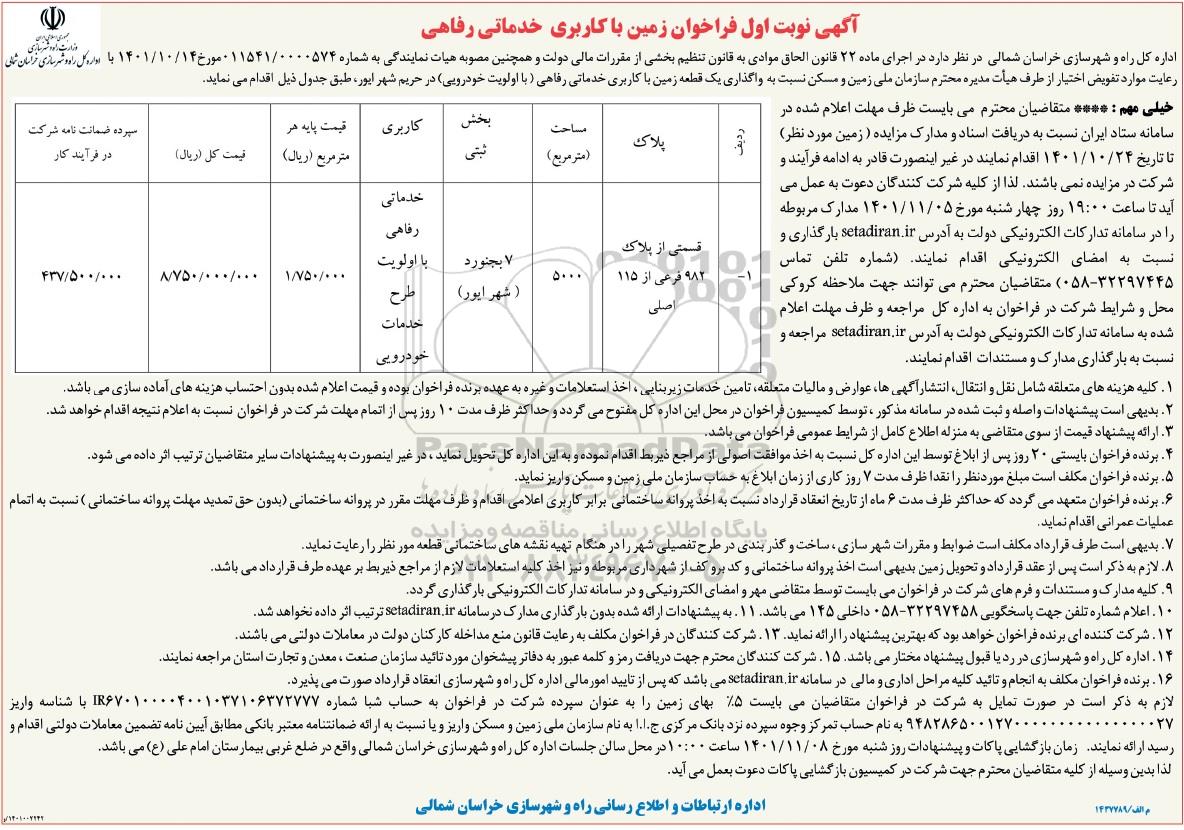 جمهوری اسلامی ایران
وزارت راه و شهرسازی
اداره کل راه و شهرسازی خراسان شمالی
آگهی نوبت اول فراخوان زمین با کاربری خدماتی رفاهی
اداره کل راه و شهرسازی خراسان شمالی در نظر دارد در اجرای ماده ۲۲ قانون الحاق موادی به قانون تنظیم بخشی از مقررات مالی دولت و همچنین مصوبه هیات نمایندگی به شماره ۰۱۱۵۴۱/۰۰۰۰۵۷۴مورخ۱۴۰۱/۱۰/۱۴ با
رعایت موارد تفویض اختیار از طرف هیأت مدیره محترم سازمان ملی زمین و مسکن نسبت به واگذاری یک قطعه زمین با کاربری خدماتی رفاهی ( با اولویت خودرویی) در حریم شهر ایور، طبق جدول ذیل اقدام می نماید.
خیلی مهم : **** متقاضیان محترم می بایست ظرف مهلت اعلام شده در
سامانه ستاد ایران نسبت به دریافت اسناد و مدارک مزایده ( زمین مورد نظر)
تا تاریخ ۱۴۰۱/۱۰/۲۴ اقدام نمایند در غیر اینصورت قادر به ادامه فرآیند و
شرکت در مزایده نمی باشند. لذا از کلیه شرکت کنندگان دعوت به عمل می
آید تا ساعت ۱۹:۰۰ روز چهار شنبه مورخ ۱۴۰۱/۱۱/۰۵ مدارک مربوطه
را در سامانه تدارکات الکترونیکی دولت به آدرس setadiran.ir بارگذاری و
نسبت به امضای الکترونیکی اقدام نمایند. (شماره تلفن تماس
۰۵۸-۳۲۲۹۷۴۴۵) متقاضیان محترم می توانند جهت ملاحظه کروکی
محل و شرایط شرکت در فراخوان به اداره کل مراجعه و ظرف مهلت اعلام
شده به سامانه تدارکات الکترونیکی دولت به آدرس setadiran.ir مراجعه و
نسبت به بارگذاری مدارک و مستندات اقدام نمایند.
ردیف
پلاک
مساحت
(مترمربع)
بخش
ثبتی
کاربری
قیمت پایه هر
مترمربع (ریال)
قیمت کل (ریال)
سپرده ضمانت نامه شرکت
در فرآیند کار
۱-
قسمتی از پلاک
۹۸۲ فرعی از ۱۱۵
اصلی
۵۰۰۰
۷ بجنورد
( شهر ایور)
خدماتی
رفاهی
با اولویت
طرح
خدمات
خودرویی
۱/۷۵۰/۰۰۰
۸/۷۵۰/۰۰۰/۰۰۰
۴۳۷/۵۰۰/۰۰۰
۱. کلیه هزینه های متعلقه شامل نقل و انتقال، انتشارآگهی ها، عوارض و مالیات متعلقه، تامین خدمات زیربنایی ، اخذ استعلامات و غیره به عهده برنده فراخوان بوده و قیمت اعلام شده بدون احتساب هزینه های آماده سازی می باشد.
۲. بدیهی است پیشنهادات واصله و ثبت شده در سامانه مذکور ، توسط کمیسیون فراخوان در محل این اداره کل مفتوح می گردد و حداکثر ظرف مدت ۱۰ روز پس از اتمام مهلت شرکت در فراخوان نسبت به اعلام نتیجه اقدام خواهد شد.
۳. ارائه پیشنهاد قیمت از سوی متقاضی به منزله اطلاع کامل از شرایط عمومی فراخوان می باشد.
۴. برنده فراخوان بایستی ۲۰ روز پس از ابلاغ توسط این اداره کل نسبت به اخذ موافقت اصولی از مراجع ذیربط اقدام نموده و به این اداره کل تحویل نماید ، در غیر اینصورت به پیشنهادات سایر متقاضیان ترتیب اثر داده می شود.
۵. برنده فراخوان مکلف است مبلغ موردنظر را نقدا ظرف مدت ۷ روز کاری از زمان ابلاغ به حساب سازمان ملی زمین و مسکن واریز نماید.
۶. برنده فراخوان متعهد می گردد که حداکثر ظرف مدت ۶ ماه از تاریخ انعقاد قرارداد نسبت به اخذ پروانه ساختمانی برابر کاربری اعلامی اقدام و ظرف مهلت مقرر در پروانه ساختمانی (بدون حق تمدید مهلت پروانه ساختمانی ) نسبت به اتمام
عملیات عمرانی اقدام نماید.
۷. بدیهی است طرف قرارداد مکلف است ضوابط و مقررات شهر سازی ، ساخت و گذر بندی در طرح تفصیلی شهر را در هنگام تهیه نقشه های ساختمانی قطعه مور نظر را رعایت نماید.
۸. لازم به ذکر است پس از عقد قرارداد و تحویل زمین بدیهی است اخذ پروانه ساختمانی و کد بر و کف از شهرداری مربوطه و نیز اخذ کلیه استعلامات لازم از مراجع ذیربط بر عهده طرف قرارداد می باشد.
۹. کلیه مدارک و مستندات و فرم های شرکت در فراخوان می بایست توسط متقاضی مهر و امضای الکترونیکی و در سامانه تدارکات الکترونیکی بارگذاری گردد.
۱۰. اعلام شماره تلفن جهت پاسخگویی ۳۲۲۹۷۴۵۸-۰۵۸ داخلی ۱۴۵ می باشد. ۱۱. به پیشنهادات ارائه شده بدون بارگذاری مدارک درسامانه setadiran.ir ترتیب اثر داده نخواهد شد.
۱۲. شرکت کننده ای برنده فراخوان خواهد بود که بهترین پیشنهاد را ارائه نماید. ۱۳. شرکت کنندگان در فراخوان مکلف به رعایت قانون منع مداخله کارکنان دولت در معاملات دولتی می باشند.
۱۴. اداره کل راه و شهرسازی در رد یا قبول پیشنهاد مختار می باشد. ۱۵. شرکت کنندگان محترم جهت دریافت رمز و کلمه عبور به دفاتر پیشخوان مورد تائید سازمان صنعت ، معدن و تجارت استان مراجعه نمایند.
۱۶. برنده فراخوان مکلف به انجام و تائید کلیه مراحل اداری و مالی در سامانه setadiran.ir می باشد که پس از تایید امورمالی اداره کل راه و شهرسازی انعقاد قرارداد صورت می پذیرد.
لازم به ذکر است در صورت تمایل به شرکت در فراخوان متقاضیان می بایست ۵٪ بهای زمین را به عنوان سپرده شرکت در فراخوان به حساب شبا شماره IR۶۷۰۱۰۰۰۰۴۰۰۱۰۳۷۱۰۶۳۷۲۷۷۷ با شناسه واریز
۹۴۸۲۸۶۵۰۰۱۲۷۰۰۰۰۰۰۰۰۰۰۰۰۰۰۰۰۲۷ به نام حساب تمرکز وجوه سپرده نزد بانک مرکزی ج.ا.ا به نام سازمان ملی زمین و مسکن واریز و یا نسبت به ارائه ضمانتنامه معتبر بانکی مطابق آیین نامه تضمین معاملات دولتی اقدام و
رسید ارائه نمایند. زمان بازگشایی پاکات و پیشنهادات روز شنبه مورخ ۱۴۰۱/۱۱/۰۸ ساعت ۱۰:۰۰در محل سالن جلسات اداره کل راه و شهرسازی خراسان شمالی واقع در ضلع غربی بیمارستان امام علی (ع) می باشد.
لذا بدین وسیله از کلیه متقاضیان محترم جهت شرکت در کمیسیون بازگشایی پاکات دعوت بعمل می آید.
ParsNamadData
پایگاه اطلاع رسانی مناقصه و مزایده
اداره ارتباطات و اطلاع رسانی راه و شهرسازی خراسان شمالی
م الف/۱۴۳۷۷۸۹
۱۴۰۱۰۰۲۲۴۲/و